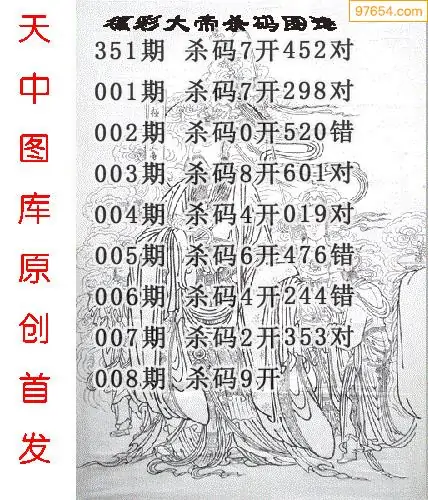 97654.com
福彩大帝杀码图迷
351期 杀码7开452对
001期 杀码7开298对
002期 杀码0开520错
003期 杀码8开601对
004期 杀码4开019对
005期 杀码6开476错
006期 杀码4开244错
007期 杀码2开353对
008期 杀码9开
天中图库原创首发